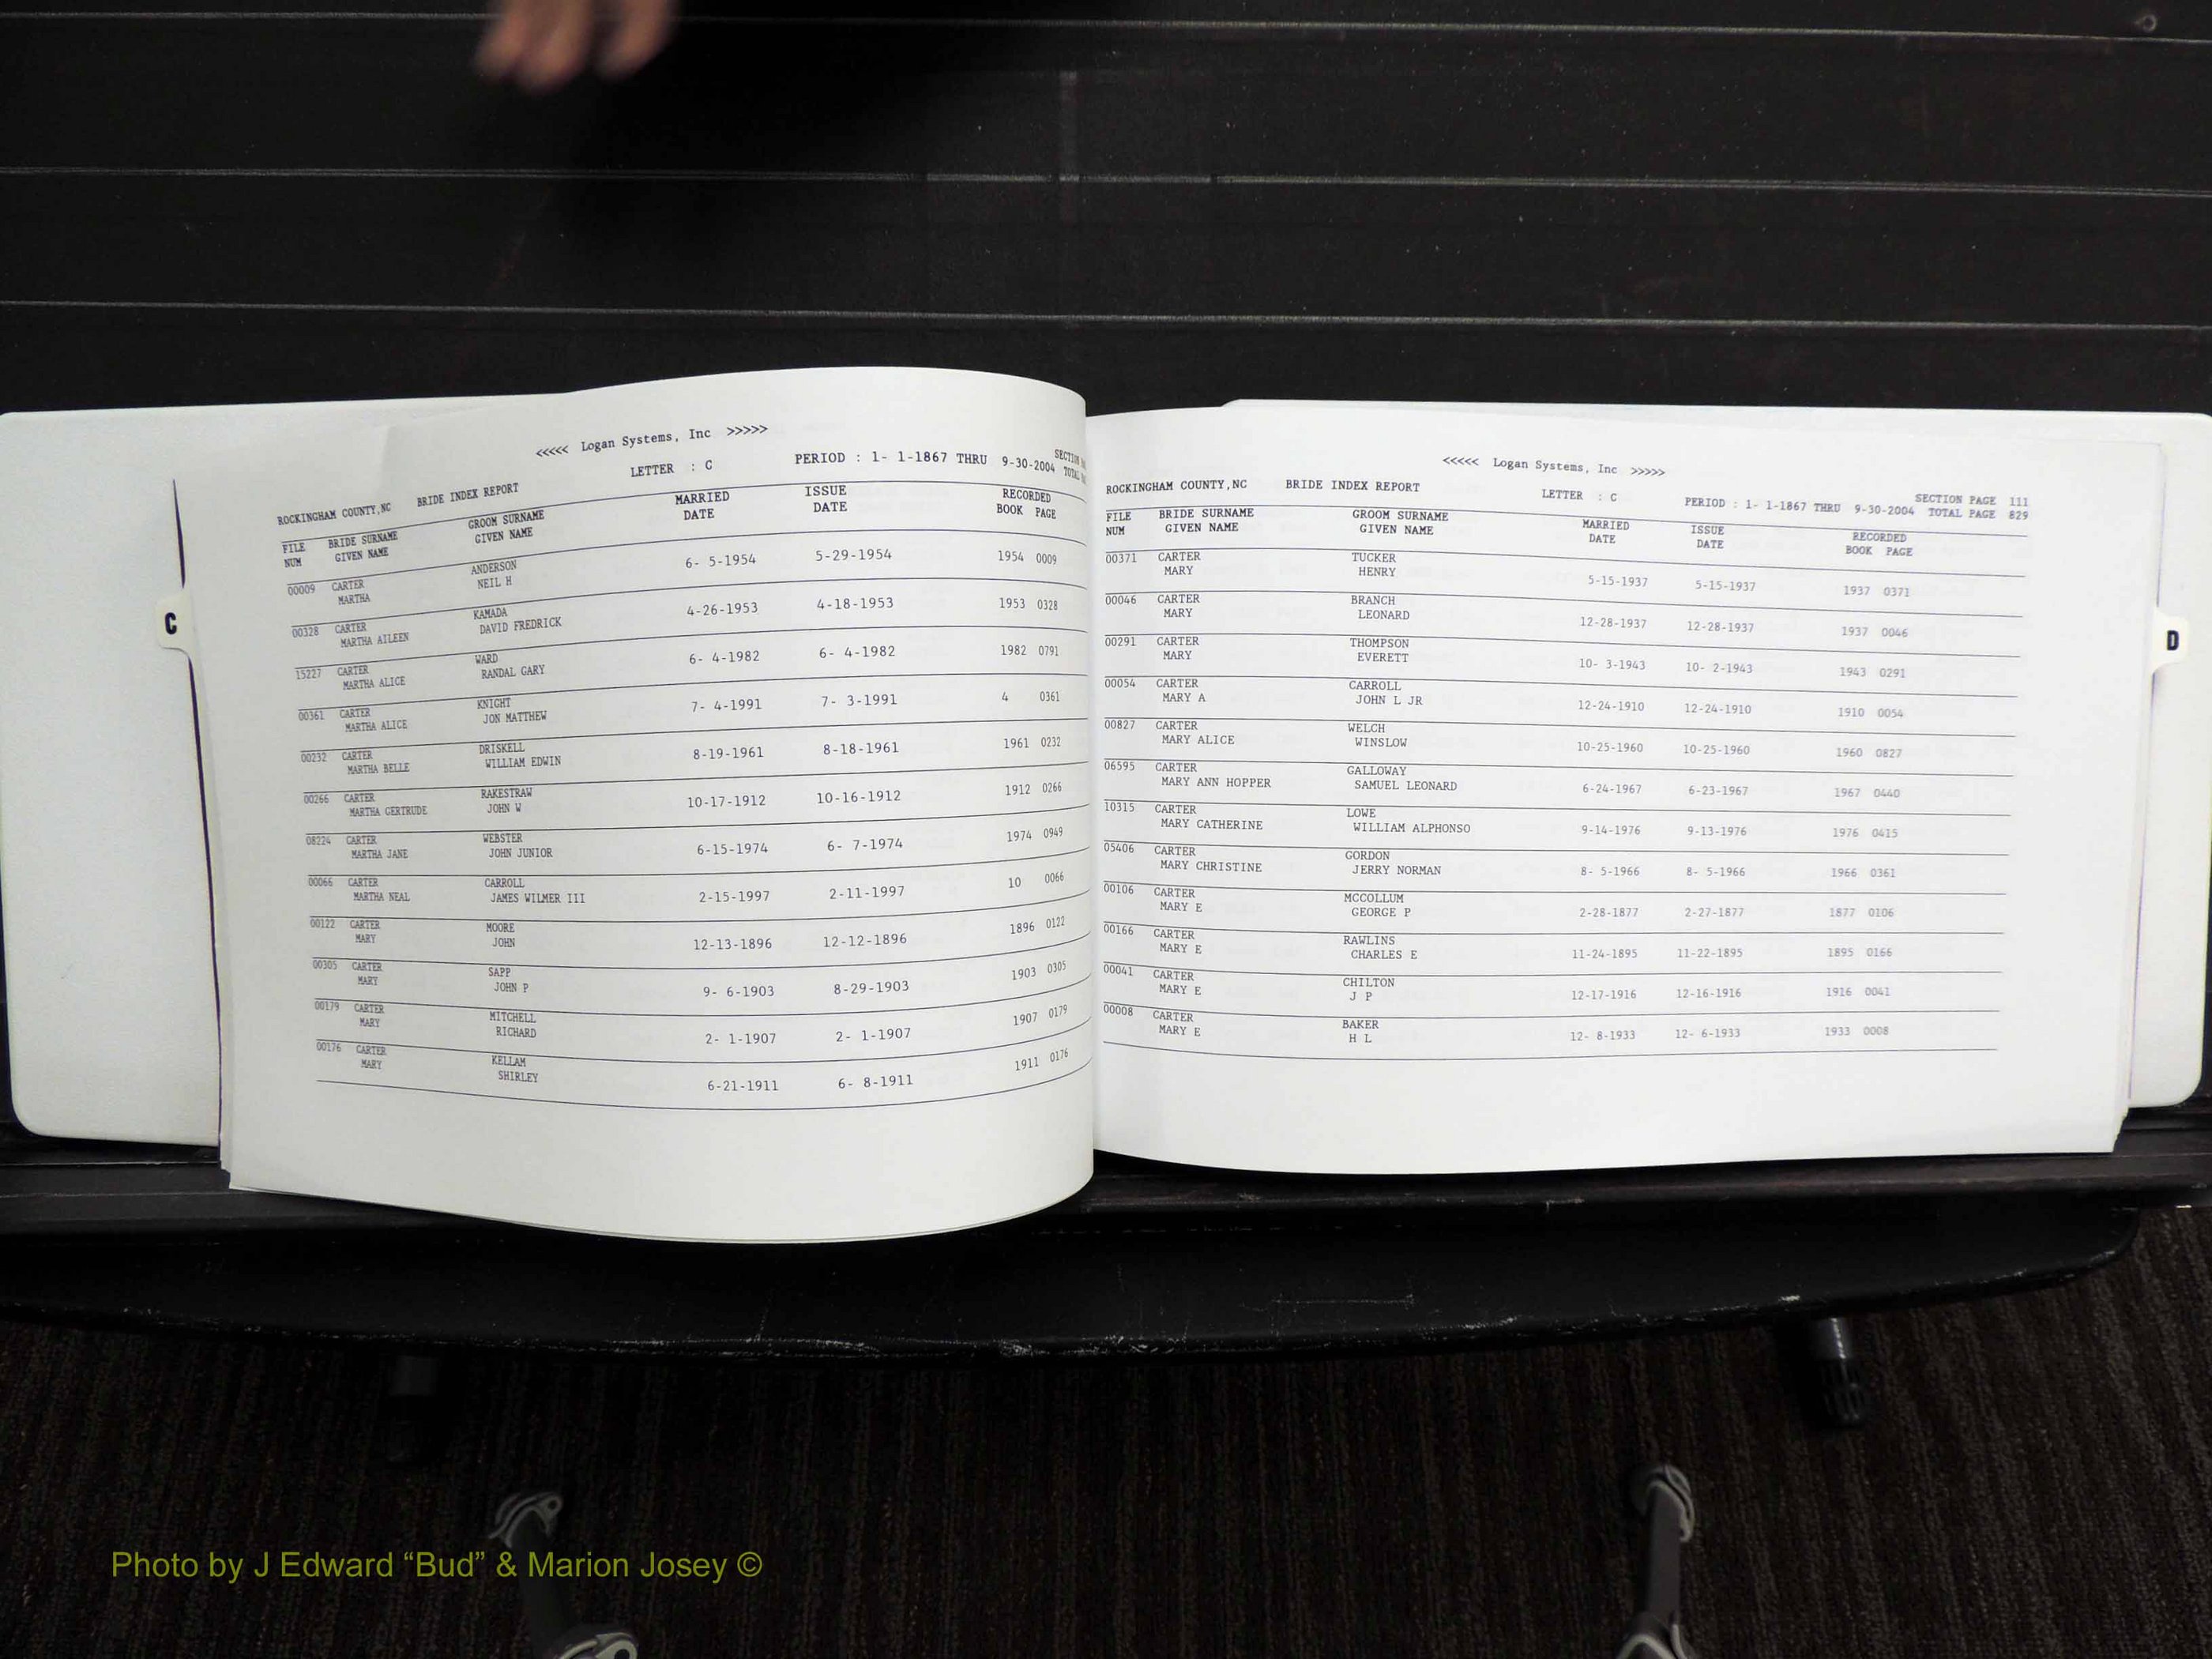 <<<<< Logan Systems, Inc >>>>>
ROCKINGHAM COUNTY,NC BRIDE INDEX REPORT LETTER : C PERIOD : 1- 1-1867 THRU 9-30-2004 SECTION
TOTAL
FILE BRIDE SURNAME GROOM SURNAME MARRIED ISSUE RECORDED
NUM GIVEN NAME GIVEN NAME DATE DATE BOOK PAGE
00009 CARTER ANDERSON 6- 5-1954 5-29-1954 1954 0009
MARTHA NEIL H
00328 CARTER KAMADA 4-26-1953 4-18-1953 1953 0328
MARTHA AILEEN DAVID FREDRICK
15227 CARTER WARD 6- 4-1982 6- 4-1982 1982 0791
MARTHA ALICE RANDAL GARY
00361 CARTER KNIGHT 7- 4-1991 7- 3-1991 4 0361
MARTHA ALICE JON MATTHEW
00232 CARTER DRISKELL 8-19-1961 8-18-1961 1961 0232
MARTHA BELLE WILLIAM EDWIN
00266 CARTER RAKESTRAW 10-17-1912 10-16-1912 1912 0266
MARTHA GERTRUDE JOHN W
08224 CARTER WEBSTER 6-15-1974 6- 7-1974 1974 0949
MARTHA JANE JOHN JUNIOR
00066 CARTER CARROLL 2-15-1997 2-11-1997 10 0066
MARTHA NEAL JAMES WILMER III
00122 CARTER MOORE 12-13-1896 12-12-1896 1896 0122
MARY JOHN
00305 CARTER SAPP 9- 6-1903 8-29-1903 1903 0305
MARY JOHN P
00179 CARTER MITCHELL 2- 1-1907 2- 1-1907 1907 0179
MARY RICHARD
00176 CARTER KELLAM 6-21-1911 6- 8-1911 1911 0176
MARY SHIRLEY
C
<<<<< Logan Systems, Inc >>>>>
ROCKINGHAM COUNTY,NC BRIDE INDEX REPORT LETTER : C PERIOD : 1- 1-1867 THRU 9-30-2004 SECTION PAGE 111
TOTAL PAGE 829
FILE BRIDE SURNAME GROOM SURNAME MARRIED ISSUE RECORDED
NUM GIVEN NAME GIVEN NAME DATE DATE BOOK PAGE
00371 CARTER TUCKER 5-15-1937 5-15-1937 1937 0371
MARY HENRY
00046 CARTER BRANCH 12-28-1937 12-28-1937 1937 0046
MARY LEONARD
00291 CARTER THOMPSON 10- 3-1943 10- 2-1943 1943 0291
MARY EVERETT
00054 CARTER CARROLL 12-24-1910 12-24-1910 1910 0054
MARY A JOHN L JR
00827 CARTER WELCH 10-25-1960 10-25-1960 1960 0827
MARY ALICE WINSLOW
06595 CARTER GALLOWAY 6-24-1967 6-23-1967 1967 0440
MARY ANN HOPPER SAMUEL LEONARD
10315 CARTER LOWE 9-14-1976 9-13-1976 1976 0415
MARY CATHERINE WILLIAM ALPHONSO
05406 CARTER GORDON 8- 5-1966 8- 5-1966 1966 0361
MARY CHRISTINE JERRY NORMAN
00106 CARTER MCCOLLUM 2-28-1877 2-27-1877 1877 0106
MARY E GEORGE P
00166 CARTER RAWLINS 11-24-1895 11-22-1895 1895 0166
MARY E CHARLES E
00041 CARTER CHILTON 12-17-1916 12-16-1916 1916 0041
MARY E J P
00008 CARTER BAKER 12- 8-1933 12- 6-1933 1933 0008
MARY E H L
D
Photo by J Edward “Bud” & Marion Josey ©